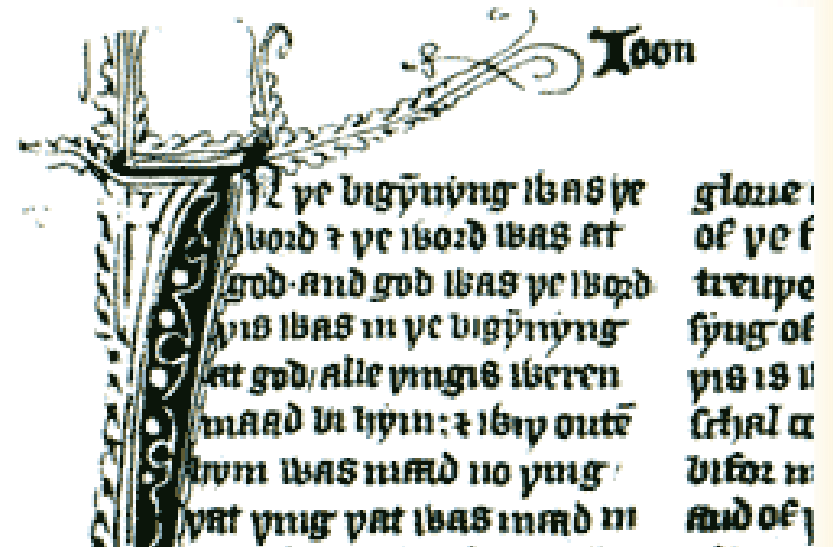 Joon
In þe bigẏnẏng was þe
word ⁊ þe word was at
god· and god was þe word
þis was in þe bigẏnẏng
at god/ alle þingis weren
maad bi hẏm: ⁊ wiþ outē
hym was maad no þing
þat þing þat was maad in
glorie
of þe
treuþe
of
þis is
schal
bifor
and of